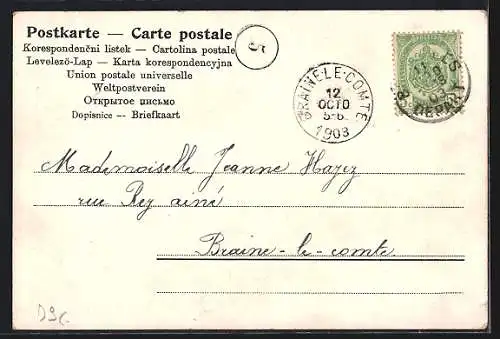 Postkarte — Carte postale
Korespondenční listek — Cartolina postale
Levelező-Lap — Karta korespondencyjna
Union postale universelle
Weltpostverein
Открытое письмо
Dopisnice — Briefkaart
5
BRAINE-LE-COMTE
12
OCTO
5-6
1903
Mademoiselle Jeanne Hayez
rue Rey ainé
Braine-le-comte